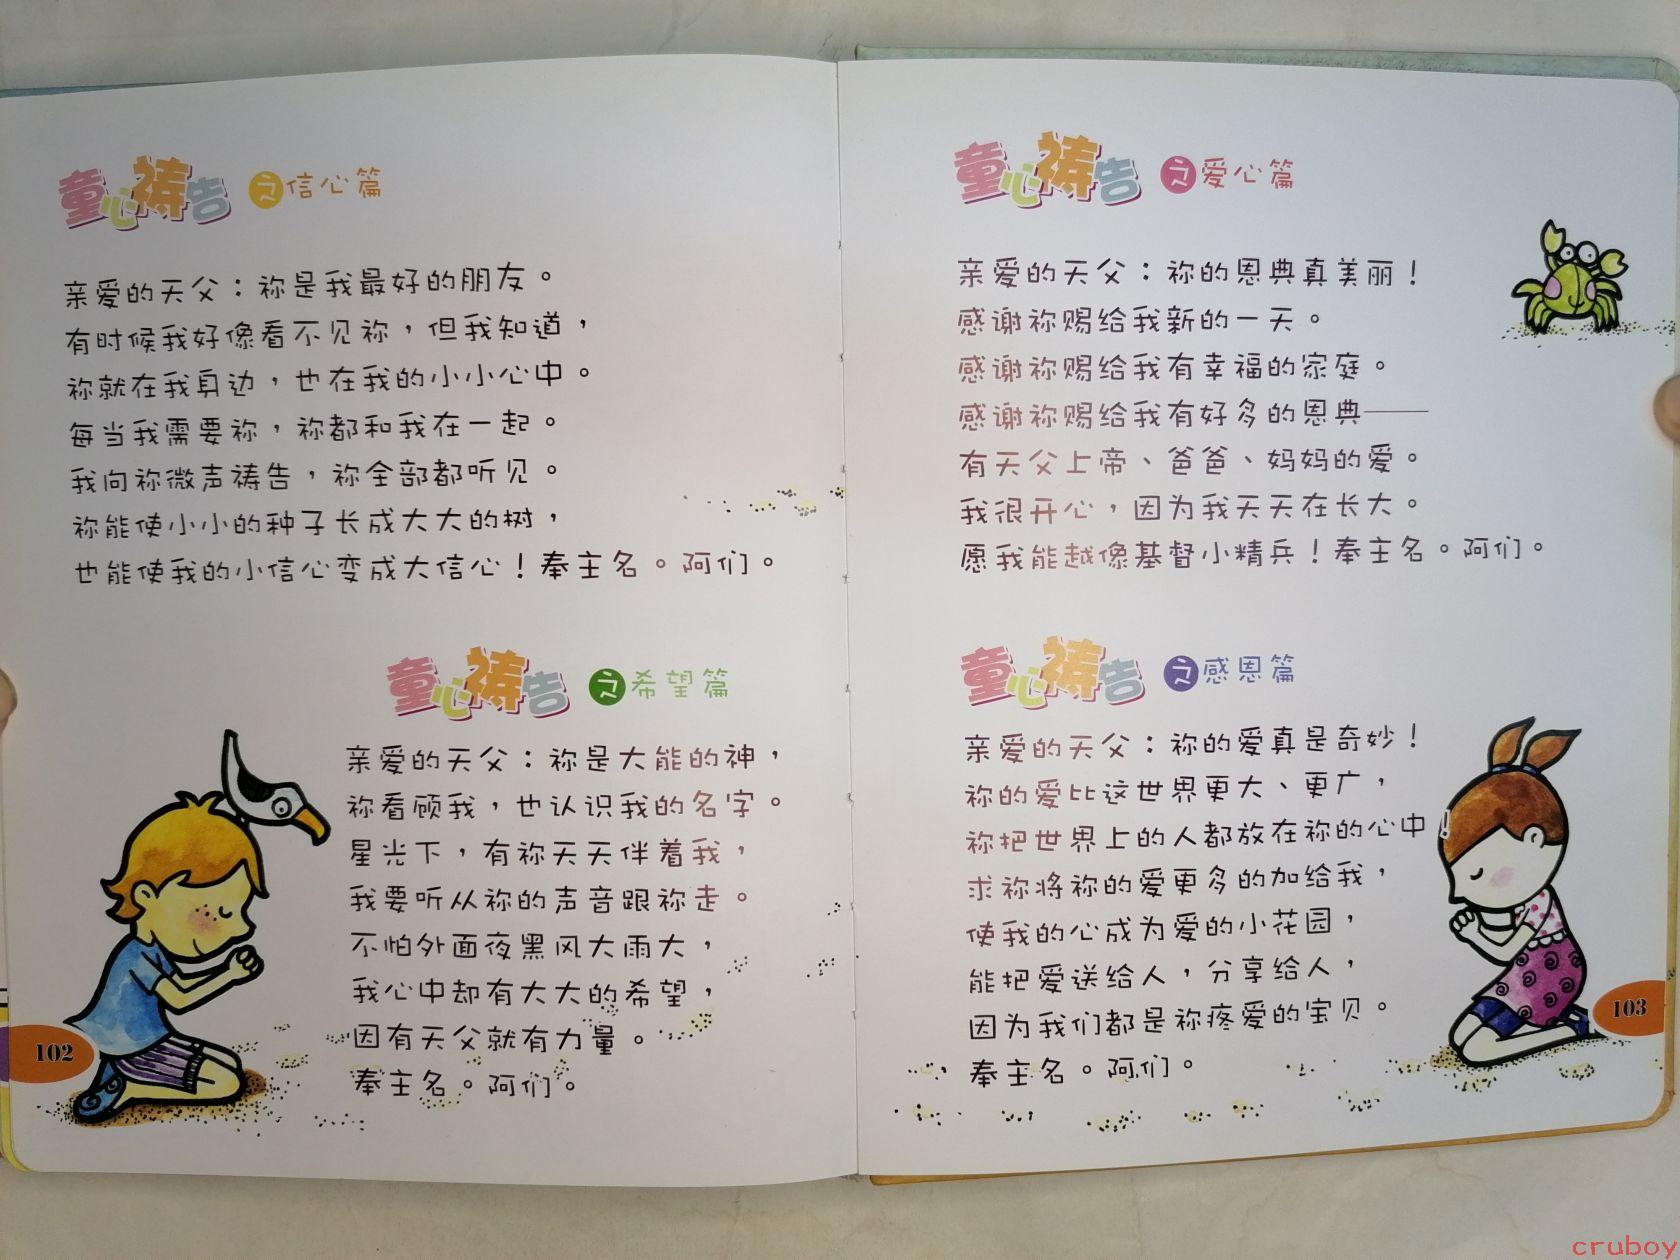 童心祷告之信心篇
亲爱的天父：祢是我最好的朋友。
有时候我好像看不见祢，但我知道，
祢就在我身边，也在我的小小心中。
每当我需要祢，祢都和我在一起。
我向祢微声祷告，祢全部都听见。
祢能使小小的种子长成大大的树，
也能使我的小信心变成大信心！奉主名。阿们。
童心祷告之希望篇
亲爱的天父：祢是大能的神，
祢看顾我，也认识我的名字。
星光下，有祢天天伴着我，
我要听从祢的声音跟祢走。
不怕外面夜黑风大雨大，
我心中却有大大的希望，
因有天父就有力量。
奉主名。阿们。
102
童心祷告之爱心篇
亲爱的天父：祢的恩典真美丽！
感谢祢赐给我新的一天。
感谢祢赐给我有幸福的家庭。
感谢祢赐给我有好多的恩典——
有天父上帝、爸爸、妈妈的爱。
我很开心，因为我天天在长大。
愿我能越像基督小精兵！奉主名。阿们。
童心祷告之感恩篇
亲爱的天父：祢的爱真是奇妙！
祢的爱比这世界更大、更广，
祢把世界上的人都放在祢的心中！
求祢将祢的爱更多的加给我，
使我的心成为爱的小花园，
能把爱送给人，分享给人，
因为我们都是祢疼爱的宝贝。
奉主名。阿们。
103
cruboy